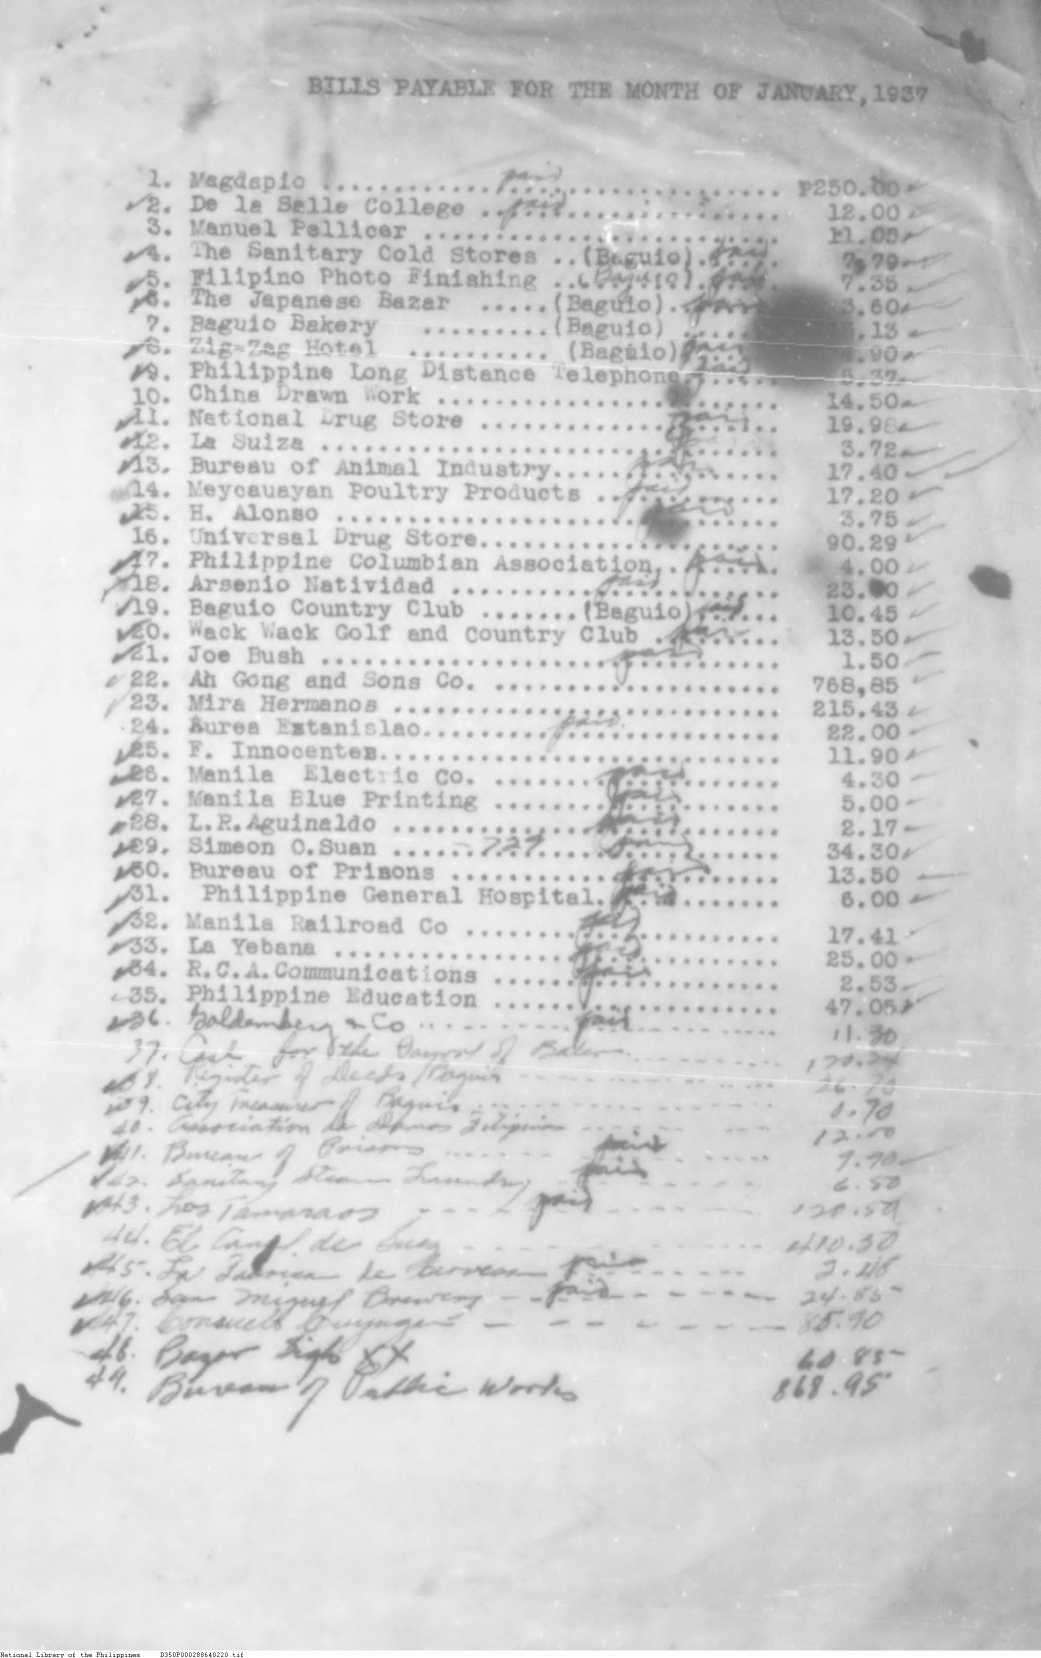 BILLS PAYABLE FOR THE MONTH OF JANUARY, 1937
1. Magdapio .................... paid .................... ₱250.00
2. De la Salle College .. paid .................... 12.00
3. Manuel Pellicer .................... 11.05
4. The Sanitary Cold Stores ..(Baguio). paid 7.79
5. Filipino Photo Finishing ..(Baguio). paid 7.35
6. The Japanese Bazar .....(Baguio). paid 3.60
7. Baguio Bakery .........(Baguio) .... .13
8. Zig-Zag Hotel .......... (Baguio) paid .90
9. Philippine Long Distance Telephone. paid 5.37
10. China Drawn Work .................... 14.50
11. National Drug Store .......... paid 19.98
12. La Suiza .................... 3.72
13. Bureau of Animal Industry..... paid 17.40
14. Meycauayan Poultry Products .. paid 17.20
15. H. Alonso .................... paid 3.75
16. Universal Drug Store.................... 90.29
17. Philippine Columbian Association.. paid 4.00
18. Arsenio Natividad .......... paid 23.00
19. Baguio Country Club .......(Baguio) paid 10.45
20. Wack Wack Golf and Country Club . paid 13.50
21. Joe Bush .................... paid 1.50
22. Ah Gong and Sons Co. .................... 768,85
23. Mira Hermanos .................... 215.43
24. Aurea Estanislao.......... paid 22.00
25. F. Innocentes.................... 11.90
26. Manila Electric Co. ........ paid 4.30
27. Manila Blue Printing ........ paid 5.00
28. L.R.Aguinaldo .............. paid 2.17
29. Simeon O.Suan ..... 727 ..... paid 34.30
30. Bureau of Prisons .......... paid 13.50
31. Philippine General Hospital. paid 6.00
32. Manila Railroad Co ........ paid 17.41
33. La Yebana .................... 25.00
34. R.C.A.Communications ...... paid 2.53
35. Philippine Education .................... 47.05
36. & Co ........ paid 11.30
37. Cash for the of
38. Register of Deeds / Baguio 26.70
39. City of Baguio 0.70
40. Association de Damas Filipinas 12.00
41. Bureau of Prisons ..... paid 9.90
42. Sanitary Steam Laundry paid 6.50
43. Los Tamaraos - - - - paid 120.50
44. El Canal de Suez - - - - 410.30
45. La de paid 2.48
46. San Miguel Brewery - - paid 24.85
47. Consuelo - - - - 85.90
48. Bazar XX 60.85
49. Bureau of Public Works 868.95
National Library of the Philippines D350P000288640220.tif